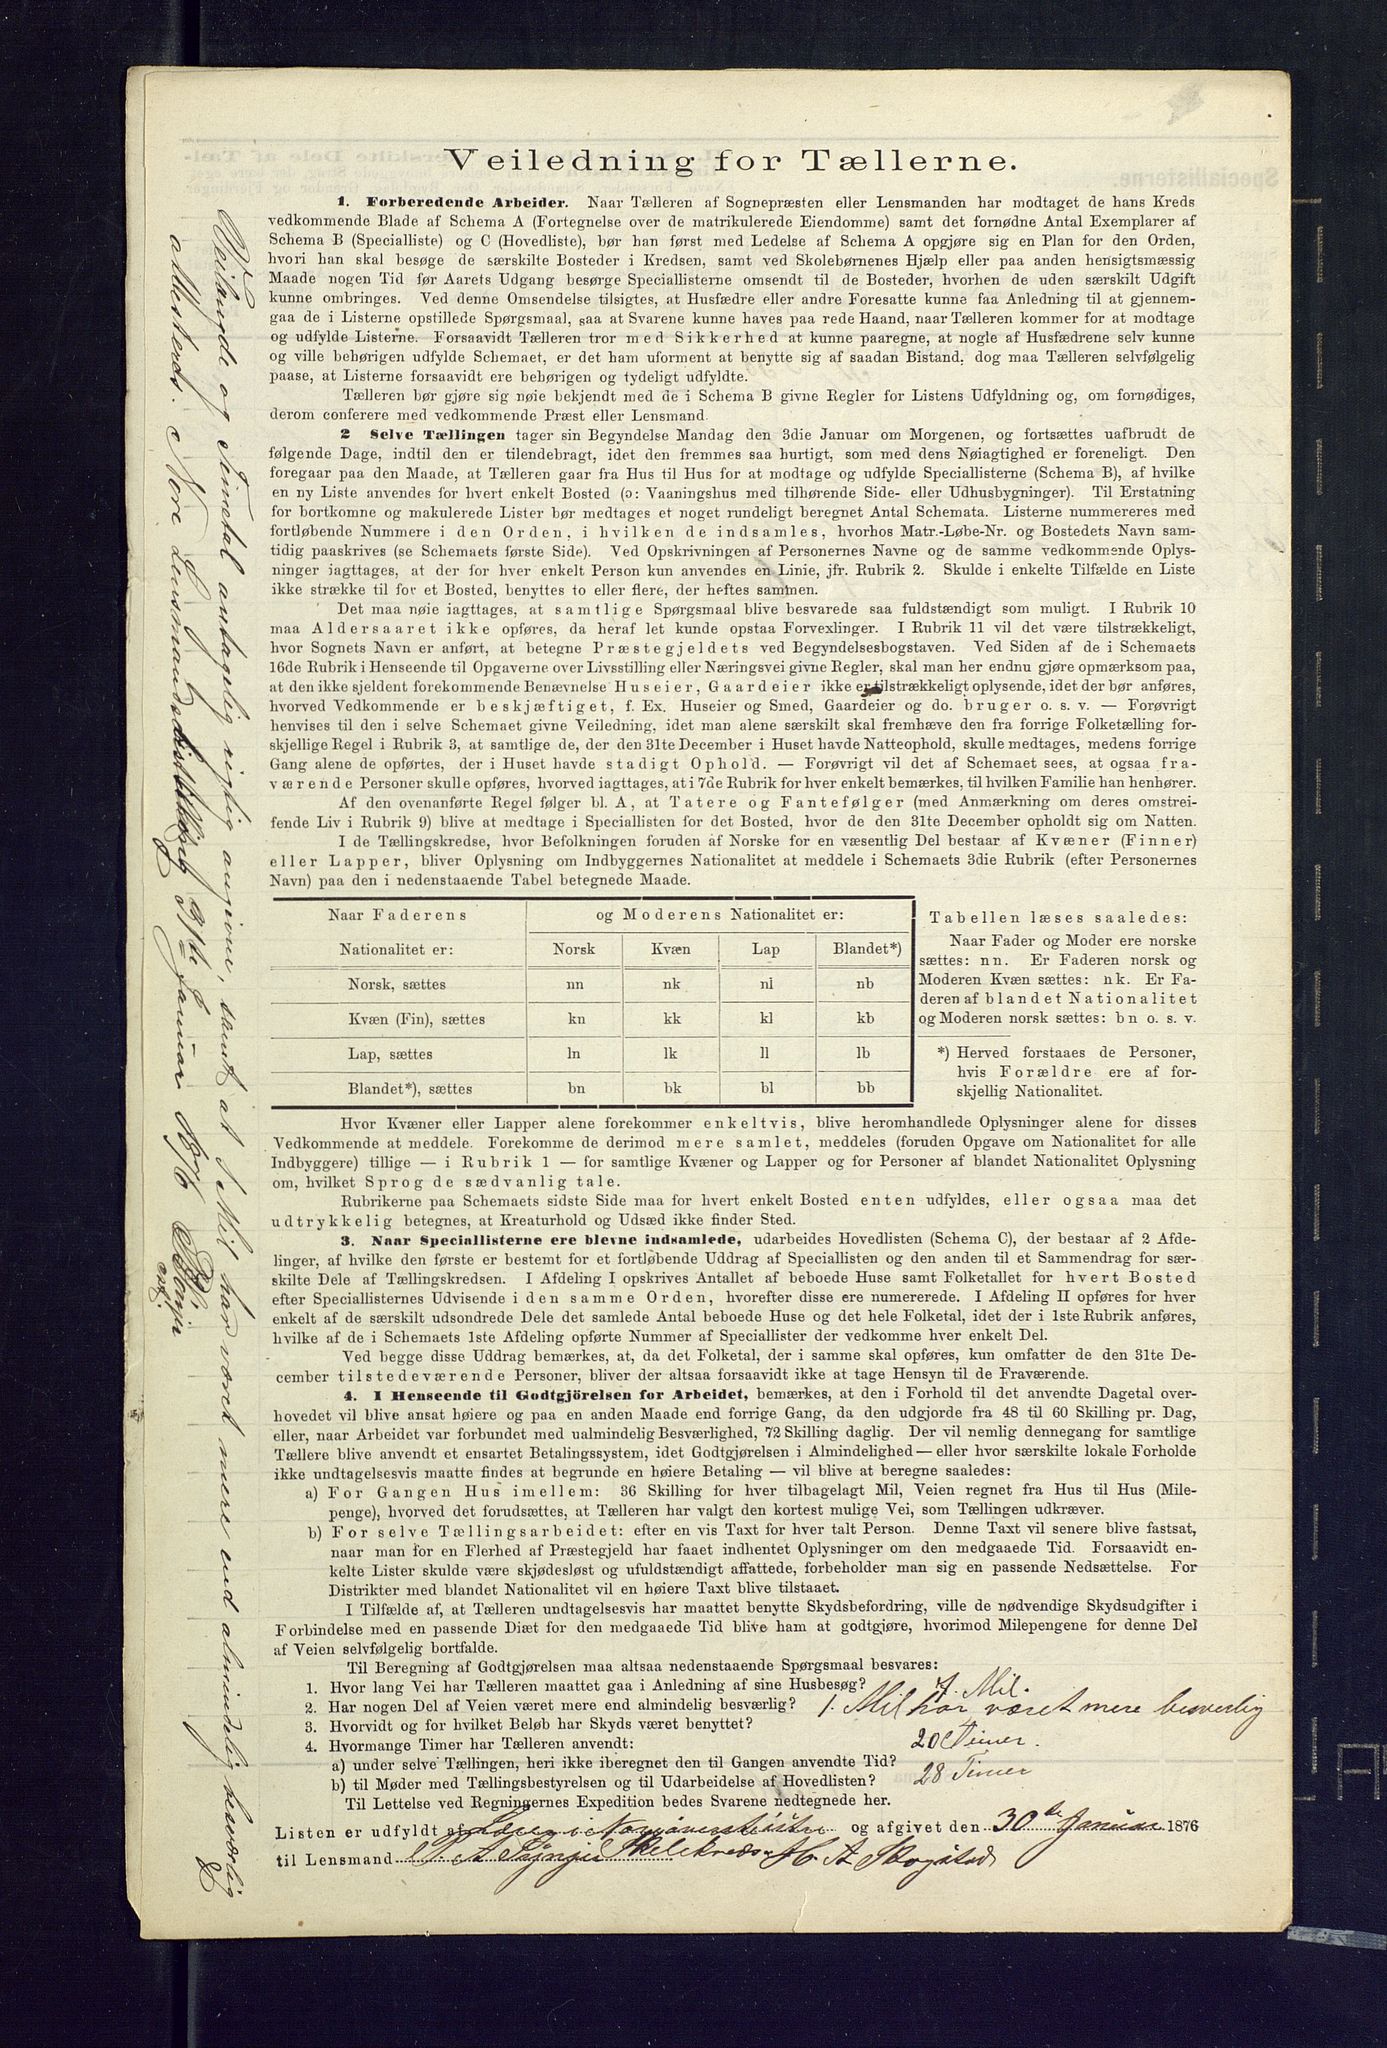 Veiledning for Tællerne.
1. Forberedende Arbeider. Naar Tælleren af Sognepræsten eller Lensmanden har modtaget de hans Kreds
vedkommende Blade af Schema A (Fortegnelse over de matrikulerede Eiendomme) samt det fornødne Antal Exemplarer af
Schema B (Specialliste) og C (Hovedliste), bør han først med Ledelse af Schema A opgjøre sig en Plan for den Orden,
hvori han skal besøge de særskilte Bosteder i Kredsen, samt ved Skolebørnenes Hjælp eller paa anden hensigtsmæssig
Maade nogen Tid før Aarets Udgang besørge Speciallisterne omsendt til de Bosteder, hvorhen de uden særskilt Udgift
kunne ombringes. Ved denne Omsendelse tilsigtes, at Husfædre eller andre Foresatte kunne faa Anledning til at gjennem-
gaa de i Listerne opstillede Spørgsmaal, saa at Svarene kunne haves paa rede Haand, naar Tælleren kommer for at modtage
og udfylde Listerne. Forsaavidt Tælleren tror med Sikkerhed at kunne paaregne, at nogle af Husfædrene selv kunne
og ville behørigen udfylde Schemaet, er det ham uforment at benytte sig af saadan Bistand, dog maa Tælleren selvfølgelig
paase, at Listerne forsaavidt ere behørigen og tydeligt udfyldte.
Tælleren bør gjøre sig nøie bekjendt med de i Schema B givne Regler for Listens Udfyldning og, om fornødiges,
derom conferere med vedkommende Præst eller Lensmand.
2 Selve Tællingen tager sin Begyndelse Mandag den 3die Januar om Morgenen, og fortsættes uafbrudt de
følgende Dage, indtil den er tilendebragt, idet den fremmes saa hurtigt, som med dens Nøiagtighed er foreneligt. Den
foregaar paa den Maade, at Tælleren gaar fra Hus til Hus for at modtage og udfylde Speciallisterne (Schema B), af hvilke
en ny Liste anvendes for hvert enkelt Bosted (ɔ: Vaaningshus med tilhørende Side- eller Udhusbygninger). Til Erstatning
for bortkomne og makulerede Lister bør medtages et noget rundeligt beregnet Antal Schemata. Listerne nummereres med
fortløbende Nummere i den Orden, i hvilken de indsamles, hvorhos Matr.-Løbe-Nr. og Bostedets Navn sam-
tidig paaskrives (se Schemaets første Side). Ved Opskrivningen af Personernes Navne og de samme vedkommende Oplys-
ninger iagttages, at der for hver enkelt Person kun anvendes en Linie, jfr. Rubrik 2. Skulde i enkelte Tilfælde en Liste
ikke strække til for et Bosted, benyttes to eller flere, der heftes sammen.
Det maa nøie iagttages, at samtlige Spørgsmaal blive besvarede saa fuldstændigt som muligt. I Rubrik 10
maa Aldersaaret ikke opføres, da heraf let kunde opstaa Forvexlinger. I Rubrik 11 vil det være tilstrækkeligt,
hvor Sognets Navn er anført, at betegne Præstegjeldets ved Begyndelsesbogstaven. Ved Siden af de i Schemaets
16de Rubrik i Henseende til Opgaverne over Livsstilling eller Næringsvei givne Regler, skal man her endnu gjøre opmærksom paa,
at den ikke sjeldent forekommende Benævnelse Huseier, Gaardeier ikke er tilstrækkeligt oplysende, idet der bør anføres,
hvorved Vedkommende er beskjæftiget, f. Ex. Huseier og Smed, Gaardeier og do. bruger o. s. v. — Forøvrigt
henvises til den i selve Schemaet givne Veiledning, idet man alene særskilt skal fremhæve den fra forrige Folketælling for-
skjellige Regel i Rubrik 3, at samtlige de, der den 31te December i Huset havde Natteophold, skulle medtages, medens forrige
Gang alene de opførtes, der i Huset havde stadigt Ophold. — Forøvrigt vil det af Schemaet sees, at ogsaa fra-
værende Personer skulle opføres, hvorved iagttages, at i 7de Rubrik for hver enkelt bemærkes, til hvilken Familie han henhører.
Af den ovenanførte Regel følger bl. A, at Tatere og Fantefølger (med Anmærkning om deres omstrei-
fende Liv i Rubrik 9) blive at medtage i Speciallisten for det Bosted, hvor de den 31te December opholdt sig om Natten.
I de Tællingskredse, hvor Befolkningen foruden af Norske for en væsentlig Del bestaar af Kvæner (Finner)
eller Lapper, bliver Oplysning om Indbyggernes Nationalitet at meddele i Schemaets 3die Rubrik (efter Personernes
Navn) paa den i nedenstaaende Tabel betegnede Maade.
Naar Faderens og Moderens Nationalitet er:
Nationalitet er: Norsk Kvæn Lap Blandet*)
Norsk, sættes nn nk nl nb
Kvæn (Fin), sættes kn kk kl kb
Lap, sættes ln lk ll lb
Blandet*), sættes bn bk bl bb
Tabellen læses saaledes:
Naar Fader og Moder ere norske
sættes: nn. Er Faderen norsk og
Moderen Kvæn sættes: nk. Er Fa-
deren af blandet Nationalitet
og Moderen norsk sættes: bn o. s. v.
*) Herved forstaaes de Personer,
hvis Forældre ere af for-
skjellig Nationalitet.
Hvor Kvæner eller Lapper alene forekommer enkeltvis, blive heromhandlede Oplysninger alene for disses
Vedkommende at meddele. Forekomme de derimod mere samlet, meddeles (foruden Opgave om Nationalitet for alle
Indbyggere) tillige — i Rubrik 1 — for samtlige Kvæner og Lapper og for Personer af blandet Nationalitet Oplysning
om, hvilket Sprog de sædvanlig tale.
Rubrikerne paa Schemaets sidste Side maa for hvert enkelt Bosted enten udfyldes, eller ogsaa maa det
udtrykkelig betegnes, at Kreaturhold og Udsæd ikke finder Sted.
3. Naar Speciallisterne ere blevne indsamlede, udarbeides Hovedlisten (Schema C), der bestaar af 2 Afde-
linger, af hvilke den første er bestemt for et fortløbende Uddrag af Speciallisten og den anden til et Sammendrag for sær-
skilte Dele af Tællingskredsen. I Afdeling I opskrives Antallet af beboede Huse samt Folketallet for hvert Bosted
efter Speciallisternes Udvisende i den samme Orden, hvorefter disse ere numererede. I Afdeling II opføres for hver
enkelt af de særskilt udsondrede Dele det samlede Antal beboede Huse og det hele Folketal, idet der i 1ste Rubrik anføres,
hvilke af de i Schemaets 1ste Afdeling opførte Nummer af Speciallister der vedkomme hver enkelt Del.
Ved begge disse Uddrag bemærkes, at, da det Folketal, der i samme skal opføres, kun omfatter de den 31te De-
cember tilstedeværende Personer, bliver der altsaa forsaavidt ikke at tage Hensyn til de Fraværende.
4. I Henseende til Godtgjörelsen for Arbeidet, bemærkes, at den i Forhold til det anvendte Dagetal over-
hovedet vil blive ansat høiere og paa en anden Maade end forrige Gang, da den udgjorde fra 48 til 60 Skilling pr. Dag,
eller, naar Arbeidet var forbundet med ualmindelig Besværlighed, 72 Skilling daglig. Der vil nemlig dennegang for samtlige
Tællere blive anvendt et ensartet Betalingssystem, idet Godtgjørelsen i Almindelighed — eller hvor særskilte lokale Forholde
ikke undtagelsesvis maatte findes at begrunde en høiere Betaling — vil blive at beregne saaledes:
a) For Gangen Hus imellem: 36 Skilling for hver tilbagelagt Mil, Veien regnet fra Hus til Hus (Mile-
penge), hvorved det forudsættes, at Tælleren har valgt den kortest mulige Vei, som Tællingen udkræver.
b) For selve Tællingsarbeidet: efter en vis Taxt for hver talt Person. Denne Taxt vil senere blive fastsat,
naar man for en Flerhed af Præstegjeld har faaet indhentet Oplysninger om den medgaaede Tid. Forsaavidt en-
kelte Lister skulde være skjødesløst og ufuldstændigt affattede, forbeholder man sig en passende Nedsættelse. For
Distrikter med blandet Nationalitet vil en høiere Taxt blive tilstaaet.
I Tilfælde af, at Tælleren undtagelsesvis har maattet benytte Skydsbefordring, ville de nødvendige Skydsudgifter i
Forbindelse med en passende Diæt for den medgaaede Tid blive ham at godtgjøre, hvorimod Milepengene for denne Del
af Veien selvfølgelig bortfalde.
Til Beregning af Godtgjørelsen maa altsaa nedenstaaende Spørgsmaal besvares:
1. Hvor lang Vei har Tælleren maattet gaa i Anledning af sine Husbesøg? Mil.
2. Har nogen Del af Veien været mere end almindelig besværlig? 1. Mil har været mere besverlig
3. Hvorvidt og for hvilket Beløb har Skyds været benyttet?
4. Hvormange Timer har Tælleren anvendt:
a) under selve Tællingen, heri ikke iberegnet den til Gangen anvendte Tid? 20 Timer.
b) til Møder med Tællingsbestyrelsen og til Udarbeidelse af Hovedlisten? 28 Timer
Til Lettelse ved Regningernes Expedition bedes Svarene nedtegnede her.
Listen er udfyldt af og afgivet den 30de Januar 1876
til Lensmand
Veilængde og Timetal antagelig rigtig angivne, samt at 1 Mil har været mere end almindelig besværlig
attesteres. Nore Lensmandsdistrikt Januar 1876